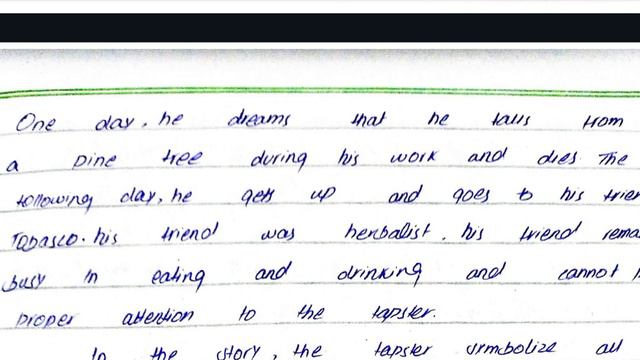 One day, he dreams that he falls from
a pine tree during his work and dies The
following day, he gets up and goes to his frien
Tobasco. his friend was herbalist. his friend rema
busy in eating and drinking and cannot
proper attention to the tapster.
In the story, the tapster symbolize all